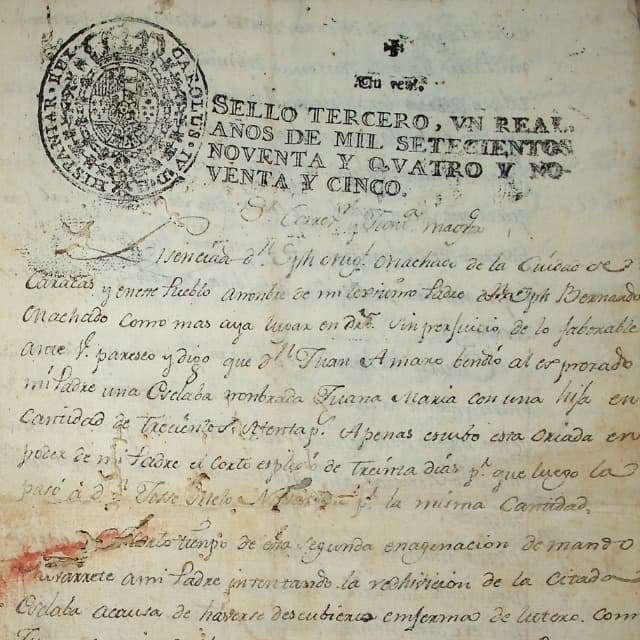 CAROLUS IV D G HISPANIAR REX
Un real.
SELLO TERCERO, VN REAL,
AÑOS DE MIL SETECIENTOS
NOVENTA Y QVATRO Y NO-
VENTA Y CINCO.
Lisenciado dn. Jph Migl. Machado de la Ciudad de
Caracas y en este Pueblo a nombre de mi lexitimo Padre dn. Jph Bernardo
Machado como mas aya lugar en dro. sin perjuicio de lo faborable
ante V. paresco y digo que dn. Juan Amaro bendió al espresado
mi Padre una Esclaba nonbrada Juana Maria con una hija en
cantidad de trecientos setenta ps. Apenas estubo esta criada en
poder de mi Padre el corto espacio de treinta dias pr. que luego la
pasó á dn. Josse Navarrete pr. la misma Cantidad.
tienpo de esta segunda enagenacion demandó
Navarrete a mi Padre intentando la redhivicion de la Citada
Esclaba a causa de haverse descubierto enferma de utero. Com